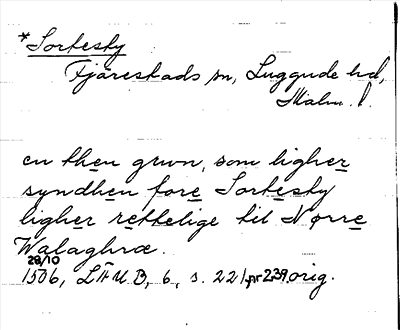 *Sortesky
Fjärestads sn, Luggude hd,
Malm. l.
en then grwn, som ligher
syndhen fore Sortesky
ligher rettelige til Nørre
Walaghræ.
28/10
1506, LÄUB, 6, s. 221, nr 239, orig.